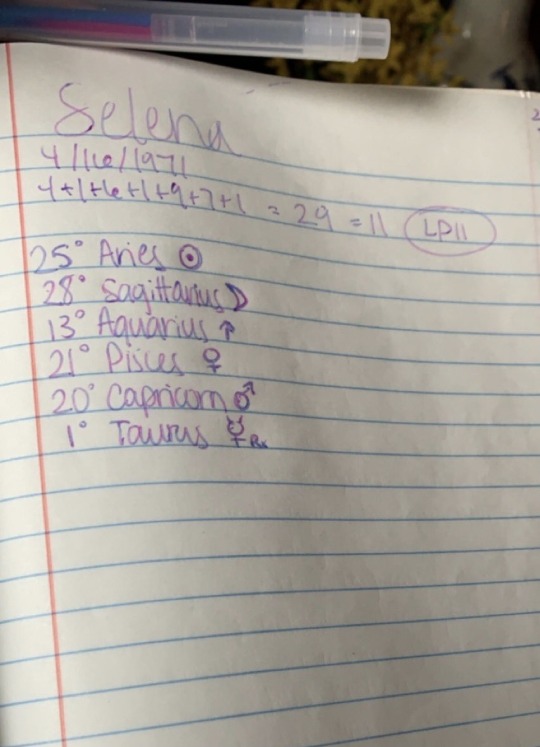 Selena
4/16/1971
4+1+6+1+9+7+1 = 29 = 11 LP11
25° Aries ☉
28° Sagittarius ☽
13° Aquarius ↑
21° Pisces ♀
20° Capricorn ♂
1° Taurus ☿ Rx